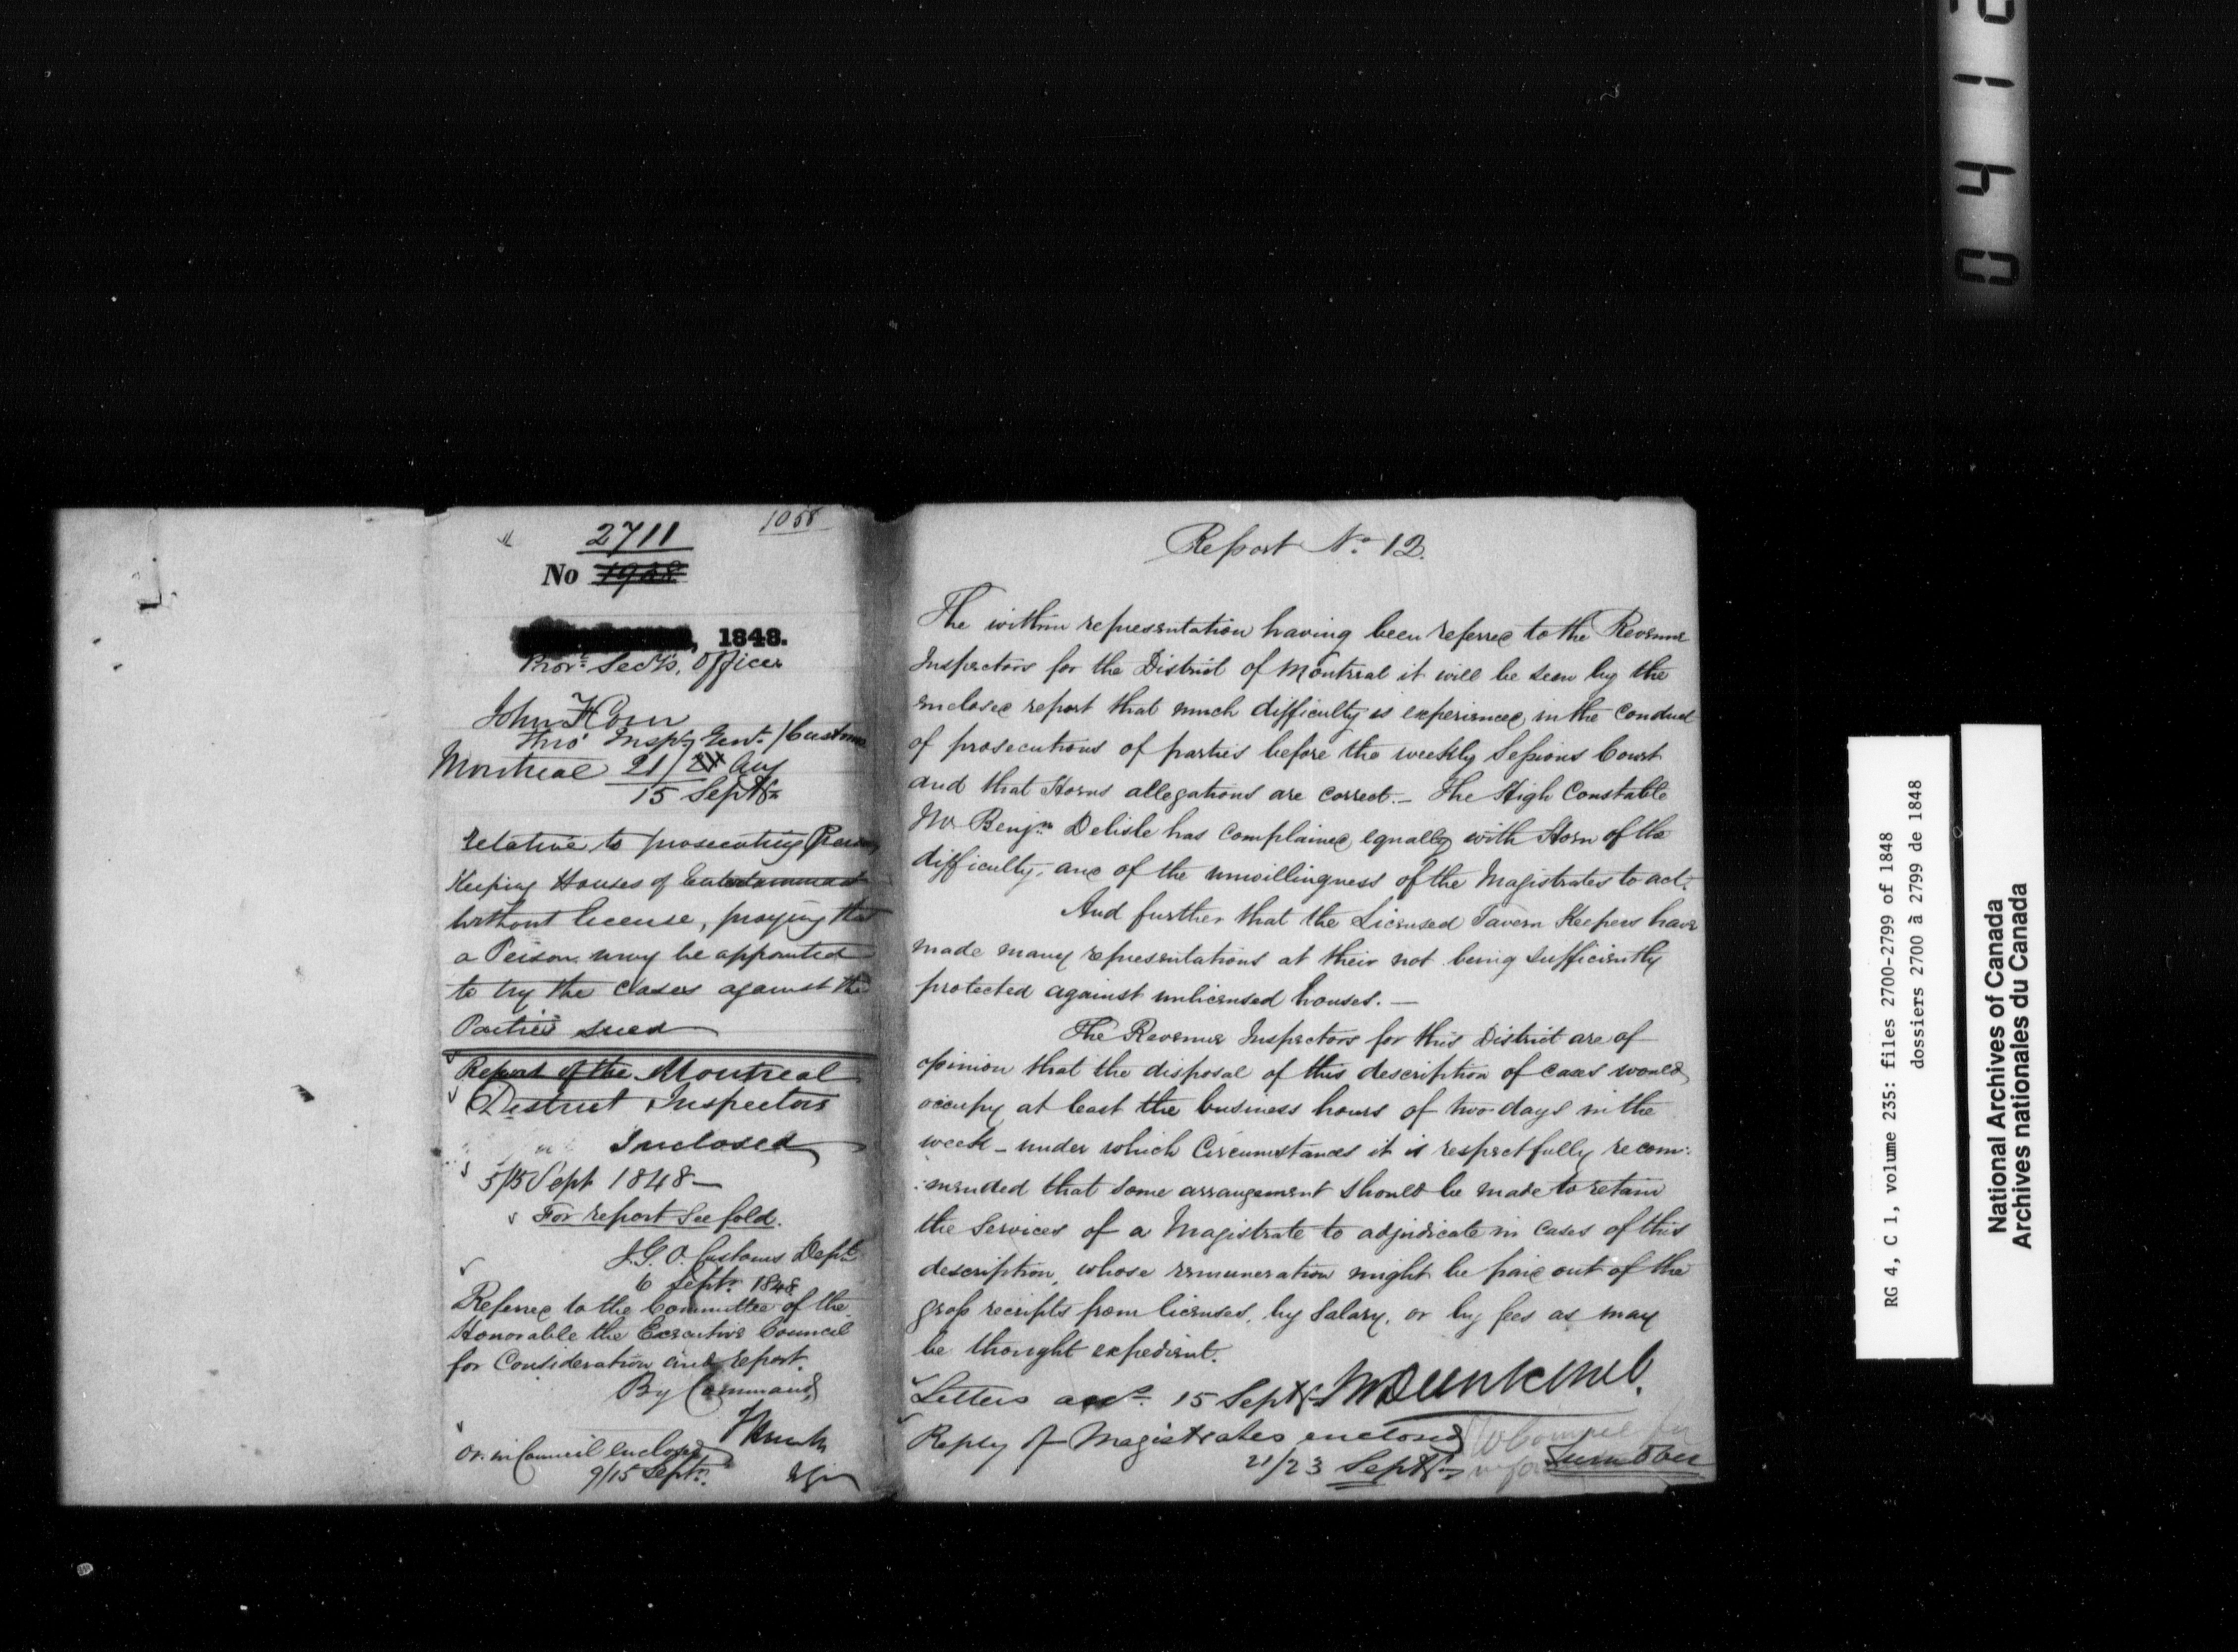 1058
2711
No 1928
, 1848.
Prov. Secy's. Office
John Horn
Thro' Insp. Genl. / Customs
Montreal 21/24 Aug
15 Sept
relative to prosecuting Persons
Keeping Houses of Entertainment
without license, praying that
a Person may be appointed
to try the cases against the
Parties sued
Report of the Montreal
District Inspectors
Inclosed
5/15 Sept 1848 —
For report see fold.
I. G. O. Customs Dept.
6 Septr. 1848
Referred to the Committee of the
Honorable the Executive Council
for Consideration and report.
By Command
Or. in Council enclosed
9/15 Septr.
Report No. 12.
The within representation having been referred to the Revenue
Inspectors for the District of Montreal it will be seen by the
enclosed report that much difficulty is experienced in the conduct
of prosecutions of parties before the weekly Sessions Court
and that Horns allegations are correct. — The High Constable
Mr Benjn. Delisle has complained equally with Horn of the
difficulty, and of the unwillingness of the Magistrates to act.
And further that the Licensed Tavern Keepers have
made many representations at their not being sufficiently
protected against unlicensed houses. —
The Revenue Inspectors for this District are of
opinion that the disposal of this description of cases would
occupy at least the business hours of two days in the
week — under which Circumstances it is respectfully recom:
:mended that some arrangement should be made to retain
the Services of a Magistrate to adjudicate in cases of this
description, whose remuneration might be paid out of the
gross receipts from licenses, by Salary, or by fees as may
be thought expedient.
Letters 15 Sept
Reply of Magistrates enclosed
21/23 Sept
RG 4, C 1, volume 235: files 2700-2799 of 1848
dossiers 2700 à 2799 de 1848
National Archives of Canada
Archives nationales du Canada
0 4 1 2